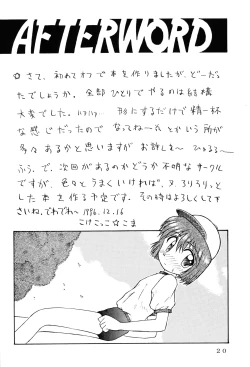 AFTERWORD
☆さて、初めてオフで本を作りましたが、どーだっ
たでしょうか。全部ひとりでやるのは結構
大変でした。ハフハフ… 形にするだけで精一杯
な感じだったので なってねーえ とかいう所が
多々あるかと思いますが お許しを〜 ひゅるる〜
ふう、で、次回があるのかどうか不明なサークル
ですが、色々とうまくいければ、又、ろりろりっと
した本を作る予定です。その時はよろしくして下
さいね。でわでわ〜 1996.12.16
こけこっこ☆こま
20